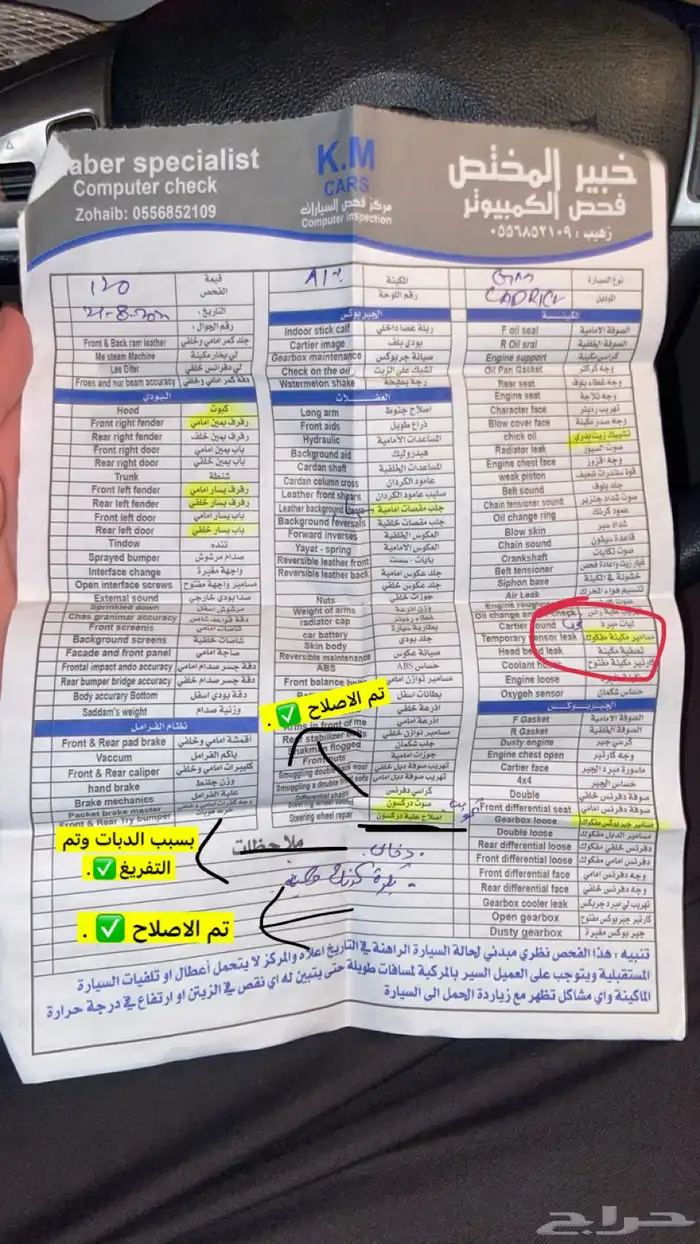 aber specialist
Computer check
Zohaib: 0556852109
K.M
CARS
مركز فحص السيارات
Computer inspection
خبير المختص
فحص الكمبيوتر
زهيب : ٠٥٥٦٨٥٢١٠٩
120 قيمة الفحص
21-8-202 التاريخ :
رقم الجوال :
Front & Back ram leather جلد كمر امامي وخلفي
Me steam Machine لي بخار مكينة
Lee Difer لي دفرنس خلفي
Froes and nur beam accuracy دقة كمر امامي وخلفي
البودي
Hood كبوت
Front right fender رفرف يمين امامي
Rear right fender رفرف يمين خلف
Front right door باب يمين امامي
Rear right door باب يمين خلفي
Trunk شنطة
Front left fender رفرف يسار امامي
Rear left fender رفرف يسار خلفي
Front left door باب يسار امامي
Rear left door باب يسار خلفي
Tindow تنده
Sprayed bumper صدام مرشوش
Interface change واجهة مغيرة
Open interface screws مسامير واجهة مفتوح
External sound صدا بودي خارجي
Sprinkled down مرشوش سفل
Chas granimar accuracy دقة قواعد شاص
Front screenis شاصات امامي
Background screens شاصات خلفي
Facade and front panel صاجة امامي
Frontal impact ando accuracy دقة جسر صدام امامي
Rear bumper bridge accuracy دقة جسر صدام خلفي
Body accurary Bottom دقة بودي اسفل
Saddam's weight وزنية صدام
نظام الفرامل
Front & Rear pad brake أقمشة امامي وخلفي
Vaccum باكم الفرامل
Front & Rear caliper كليبرات امامي وخلفي
hand brake وزن جلنط
Brake mechanics علبة الفرامل
Packet brake master
Front & Rear Try bumper
المكينة
رقم اللوحة
الجيربوكس
Indoor stick calf ربلة عصا داخلي
Cartier image بودي بلف
Gearbox maintenance صيانة جربوكس
Check on the oil تشيك على الزيت
Watermelon shake رجة بطيخة
العفشات
Long arm اصلاح جنوط
Front aids ذراع طويل
Hydraulic المساعدات الأمامية
Background aid هيدروليك
Cardan shaft المساعدات الخلفية
Cardan column cross عامود الكردان
Leather front shears صليب عامود الكردان
Leather background جلب مقصات امامية
Background reversals جلب مقصات خلفية
Forward inverses العكوس الخلفية
Yayat - spring العكوس الأمامية
Reversible leather front يايات - سست
Reversible leather back جلد عكوس امامية
جلد عكوس خلفي
Nuts جوزات خلفي
Weight of arms وزن اذرعة
radiator cap غطاء رديتر
car battery بطارية سيارة
Skin body جلد بودي
Reversible maintenance صيانة عكوس
ABS حساس ABS
Front balance مسامير توازن امامي
بطانات اسفل
اذرعة خلفي
Arms in front of me اذرعة امامي
Rear stabilizer مسامير توازن خلفي
flogged جلب شكمان
Front nuts جوزات امامية
Smuggling double تهريب صوفة دبل خلفي
Smuggling a double تهريب صوفة دبل امامي
Differential chairs كراسي دفرنس
Steering wheel sound صوت دركسون
Steering wheel repair اصلاح علبة دركسون
ملاحظات
دخان
نوع السيارة
الموديل CADRICE
المكينة
F oil seal الصوفة الامامية
R Oil sral الصوفة الخلفية
Engine support كراسي مكينة
Oil Pan Gasket وجه كركتر
Rear seat وجه غطاء بلوف
Engine seat وجه ثلاجة
Character face تهريب رديتر
Blow cover face وجه صدر مكينة
chick oil تشييك زيت بدري
Radiator leak صوت السيور
Engine chest face وجه افزوز
weak piston قوة سلندرات ضعيف
Belt sound جلد بلوف
Chain tensioner sound صوت شداد جنزير
Oil change ring عمود كرنك
Blow skin شداد سير
Chain sound قاعدة سيفون
Crankshaft صوت تكايات
Belt tensioner غيار زيت وعادة فحص
Siphon base خشونة في المكينة
Air Leak تنسيم هواء المحرك
Engine rough
Oil change and check
Cartier sound ثبات مبرد
Temporary sensor leak مسامير مكينة مفكوك
Head bead leak تصفية مكينة
Coolant hose كارتير مكينة مفتوح
Engine loose
Oxygeh sensor حساس شكمان
الجيربوكس
F Gasket الصوفة الأمامية
R Gasket الصوفة الخلفية
Dusty engine كرسي جير
Engine chest open وجه كارتير
Cartier face ماسورة مبرد الجير
4x4 حساس الجير
Double صوفة دفرنس خلفي
Front differential seat صوفة دفرنس امامي
Gearbox loose مسامير جيربوكس مفكوك
Double loose مسامير الدبل مفكوك
Rear differential loose دفرنس خلفي مفكوك
Front differential loose دفرنس امامي مفكوك
Front differential face وجه دفرنس امامي
Rear differential face وجه دفرنس خلفي
Gearbox cooler leak تهريب لي مبرد جربكس
Open gearbox كارتير جيربوكس مفتوح
Dusty gearbox جير بوكس مغبرة
تم الاصلاح ✅ .
بسبب الدبات وتم
التفريغ ✅ .
تم الاصلاح ✅ .
تنبيه : هذا الفحص نظري مبدئي لحالة السيارة الراهنة في التاريخ اعلاه والمركز لا يتحمل أعطال او تلفيات السيارة
المستقبلية ويتوجب على العميل السير بالمركبة لمسافات طويلة حتى يتبين له اي نقص في الزيتن او ارتفاع في درجة حرارة
الماكينة واي مشاكل تظهر مع زيارة الحمل الى السيارة
حراج